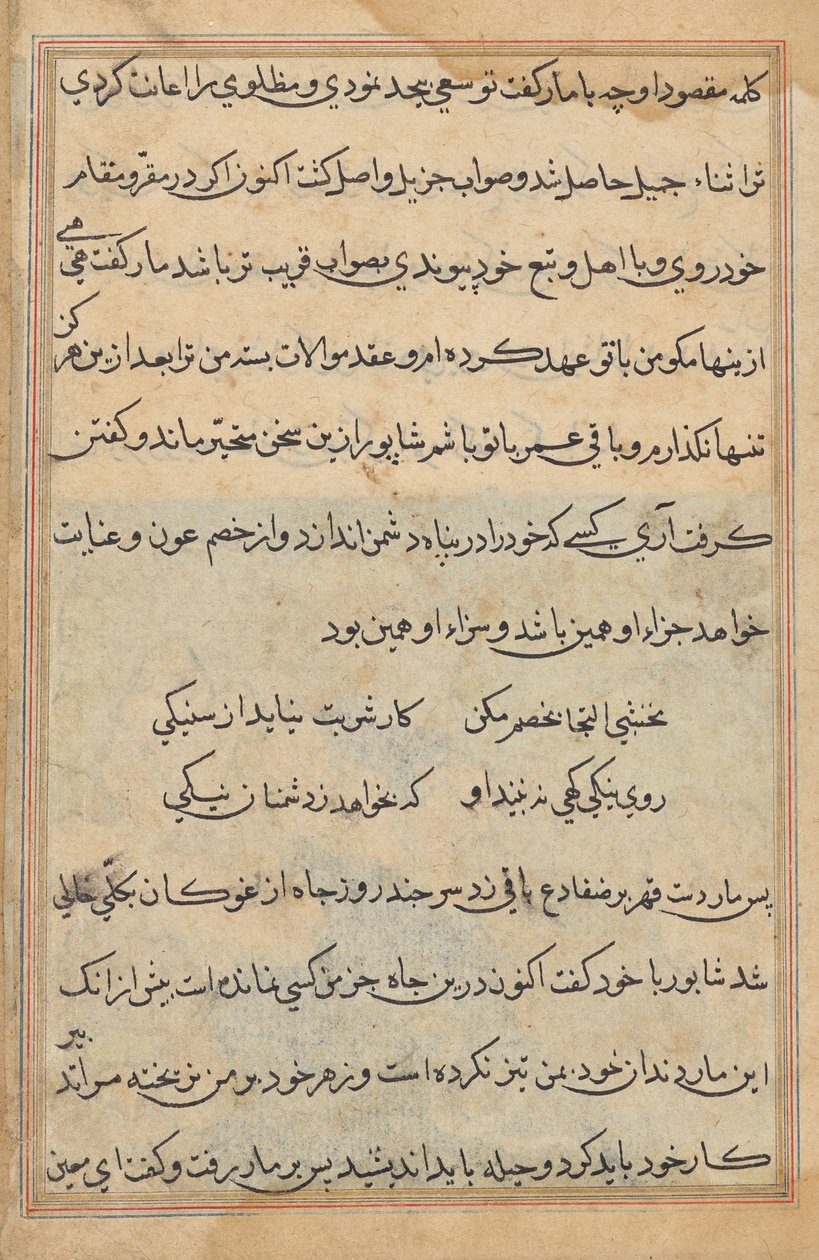 کلمه مقصود او چه با مار کفت تو سعی بجد نمودي و مظلومي را اعانت کردي
ترا ثناء جمیل حاصل شد و صواب جزیل واصل کشت اکنون اکر در مقرّ و مقام
خود روي و با اهل و تبع خود پیوندي بصواب قریب تر باشد مار کفت هي هي
از ینها مکو من با تو عهد کرده ام و عقد موالات بسته من ترا بعد ازین هرکز
تنها نکذارم و باقي عمر با تو باشم شاپور ازین سخن متحیّر ماند و کفتن
کرفت آري کسے که خود را در پناه دشمن اندازد و از خصم عون و عنایت
خواهد جزاء او همین باشد و سزاء او همین بود
نخشبي التجا بخصم مکن کار شربت نیاید از
روي نیکي کهي نه بیند او که بخواهد ز دشمنان نیکي
پس مار دست قهر بر ضفادع باقي زد سر چند روز چاه از غوکان بکلّي خالي
شد شاپور با خود کفت اکنون درین چاه جز من کسي نمانده است پیش از انک
این مار دندان خود بمن تیز نکرده است و زهر خود بر من نریخته مراتدبیر
کار خود باید کرد و حیله باید اندیشید پس بر مار رفت و کفت اي معین